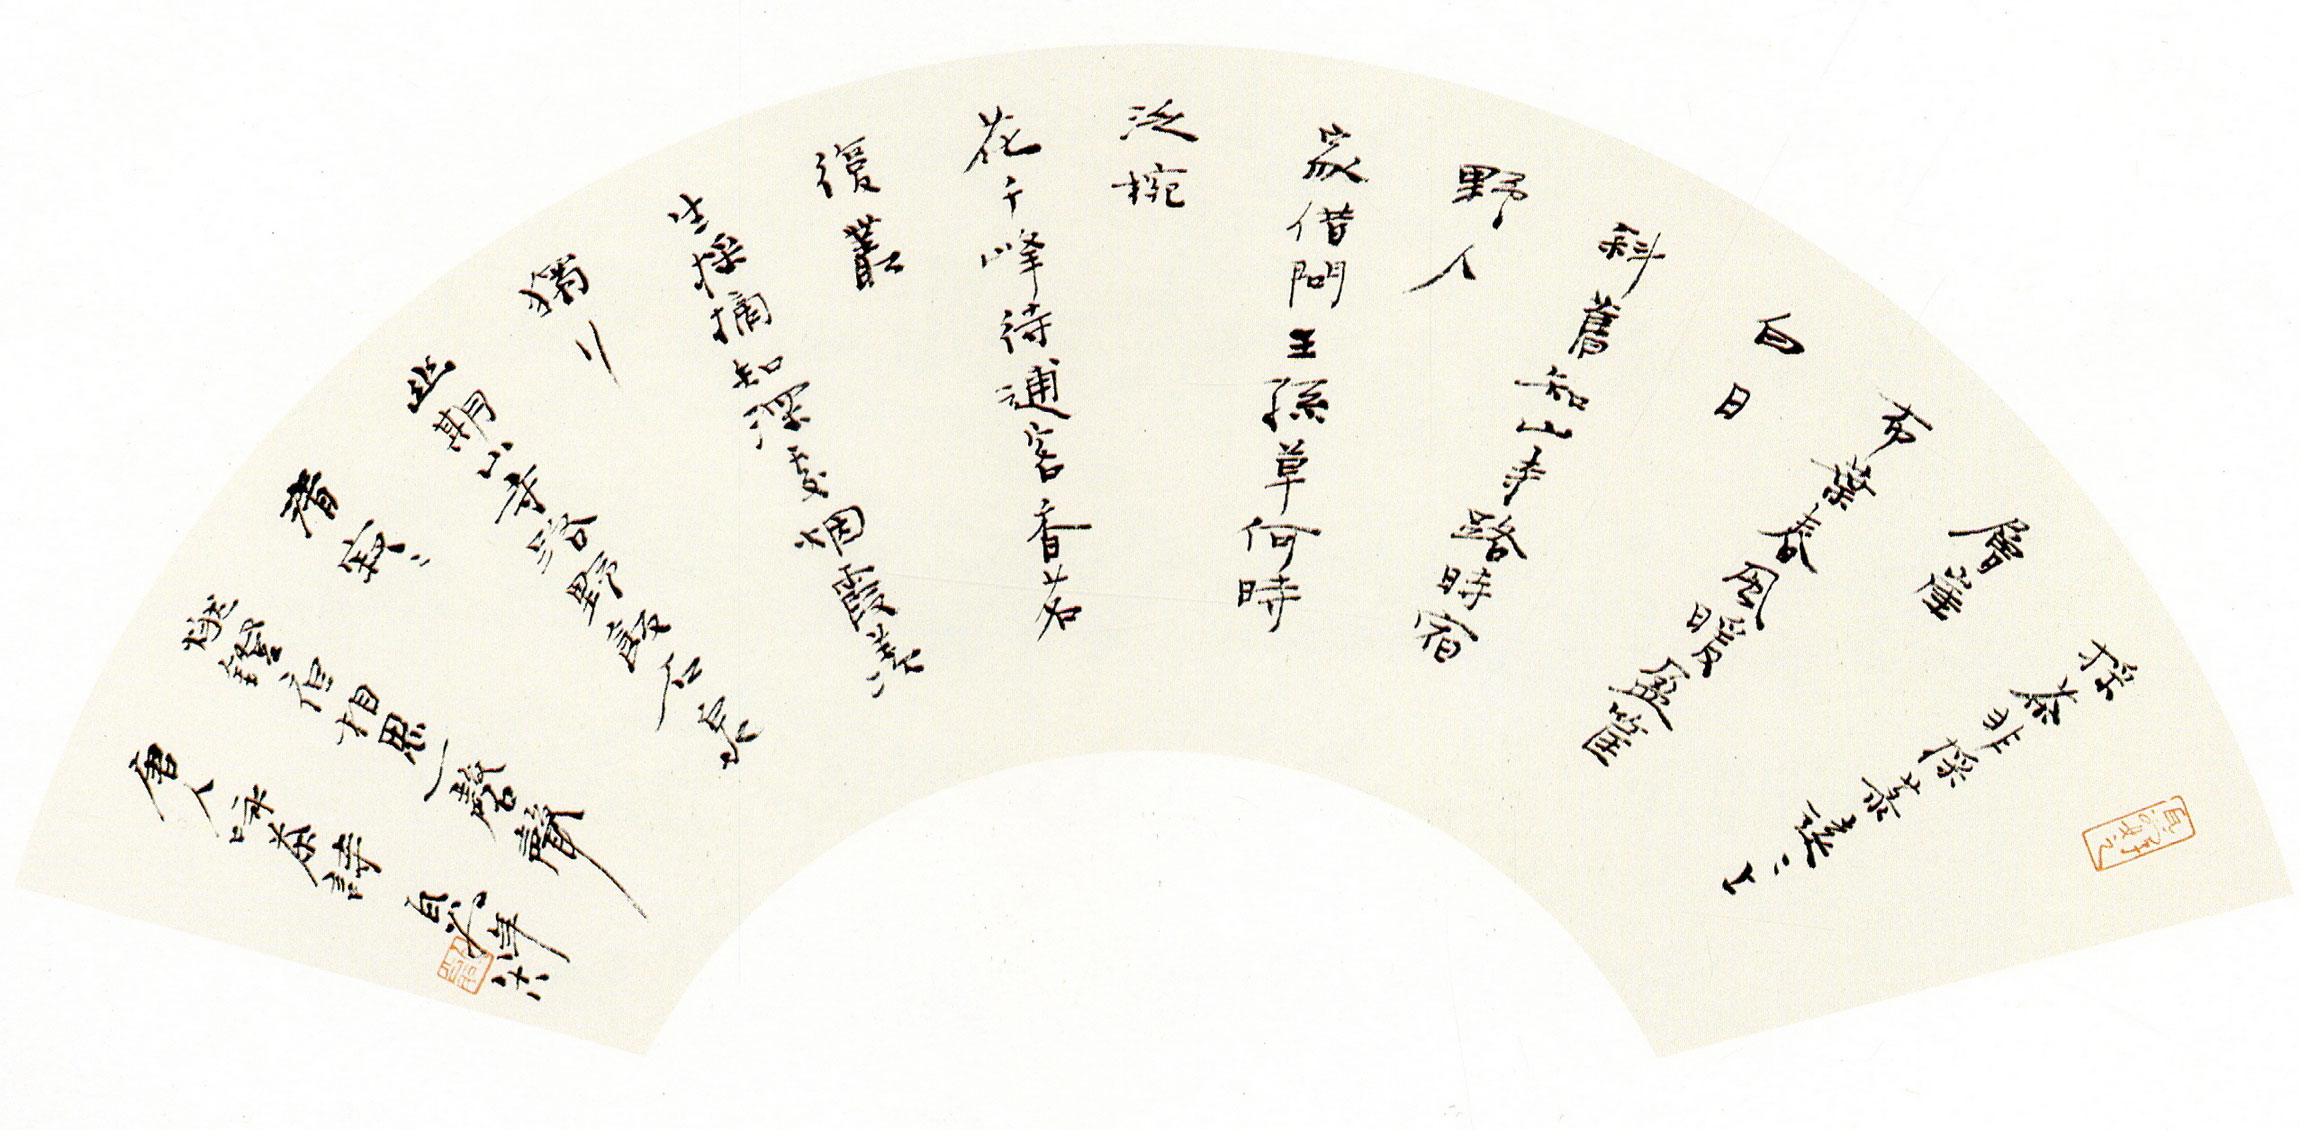 採茶非採菉遠〻上
層崖
布葉春風暖盈筐
白日
斜舊知山寺路時宿
野人
家借問王孫草何時
泛椀
花千峰待逋客香茗
復叢
生採摘知深處烟霞羨
獨行
幽期山寺路野飯石泉
清寂〻
燃燈宿相思一磬聲
唐人咏茶詩